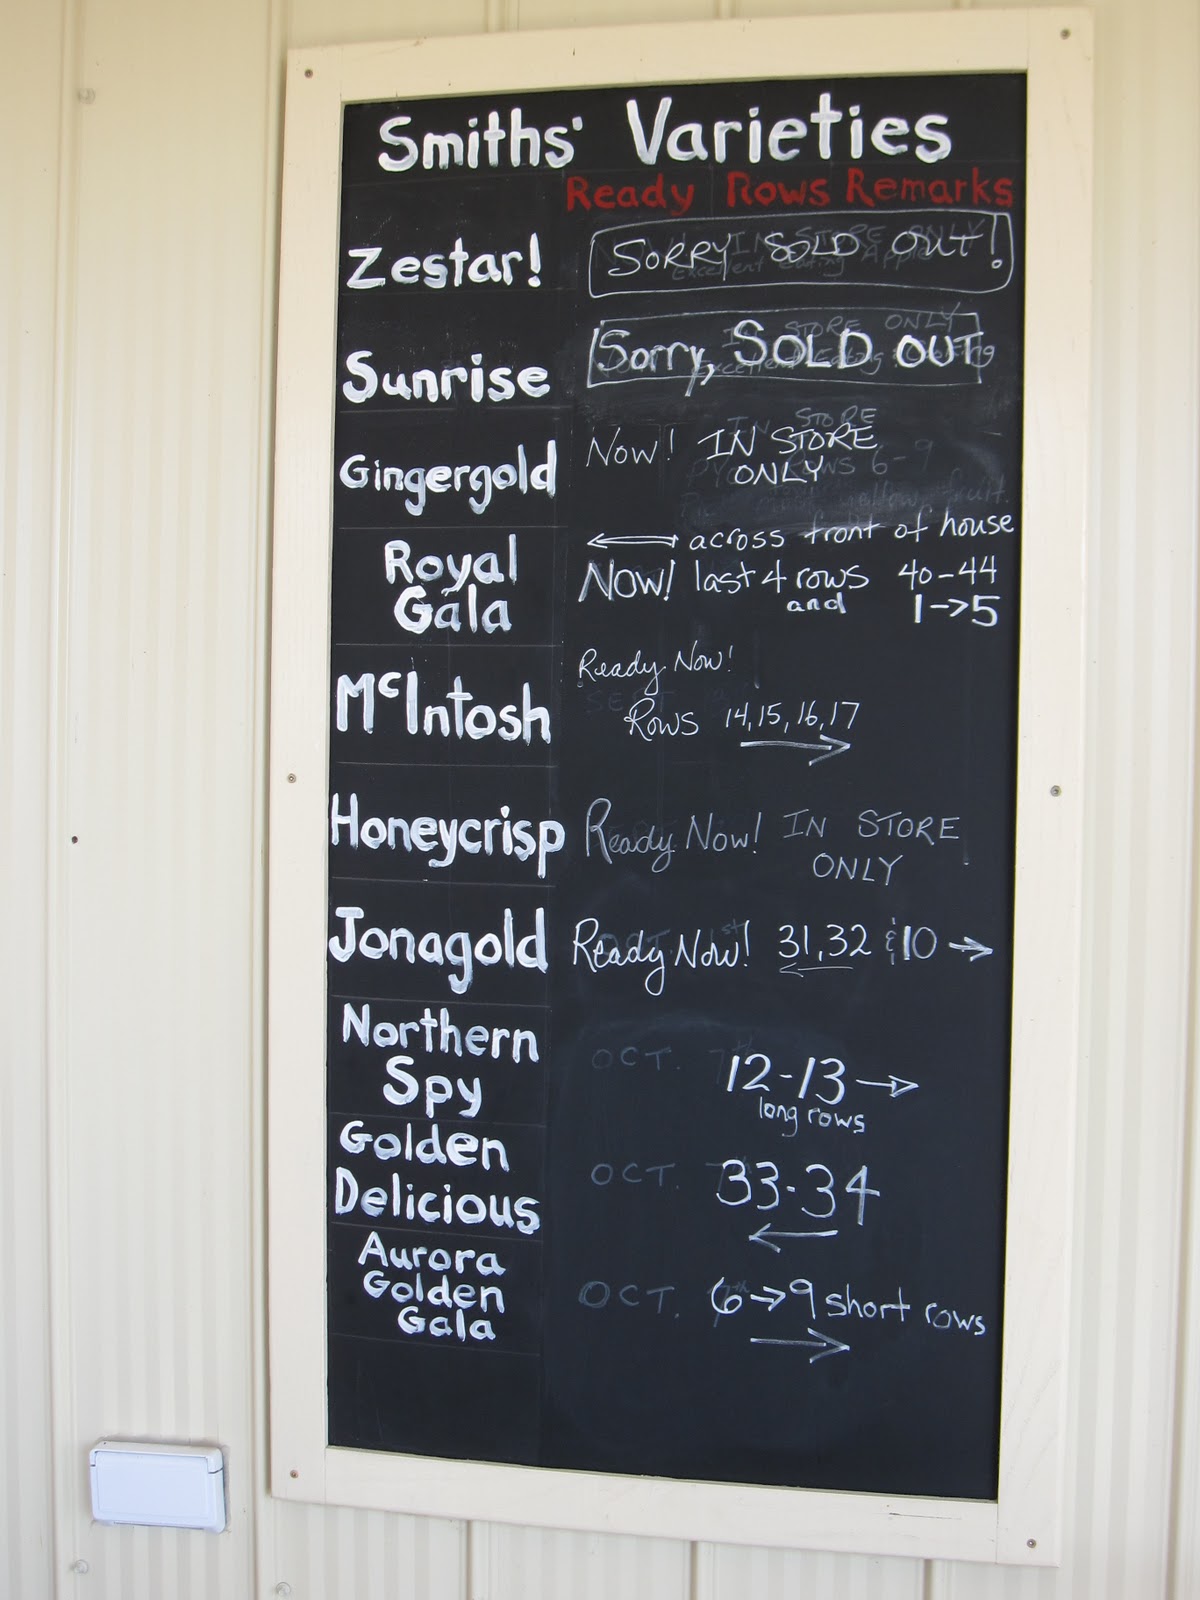 Smiths' Varieties
Ready Rows Remarks
Zestar! SORRY SOLD OUT!
Sunrise Sorry, SOLD OUT
Gingergold Now! IN STORE
ONLY
← across front of house
Royal NOW! last 4 rows 40-44
Gala and 1→5
Ready Now!
McIntosh Rows 14, 15, 16, 17
→
Honeycrisp Ready Now! IN STORE
ONLY
Jonagold Ready Now! 31, 32 & 10 →
←
Northern OCT. 7th 12-13 →
Spy long rows
Golden
Delicious OCT. 33-34
←
Aurora
Golden OCT. 6→9 short rows
Gala →